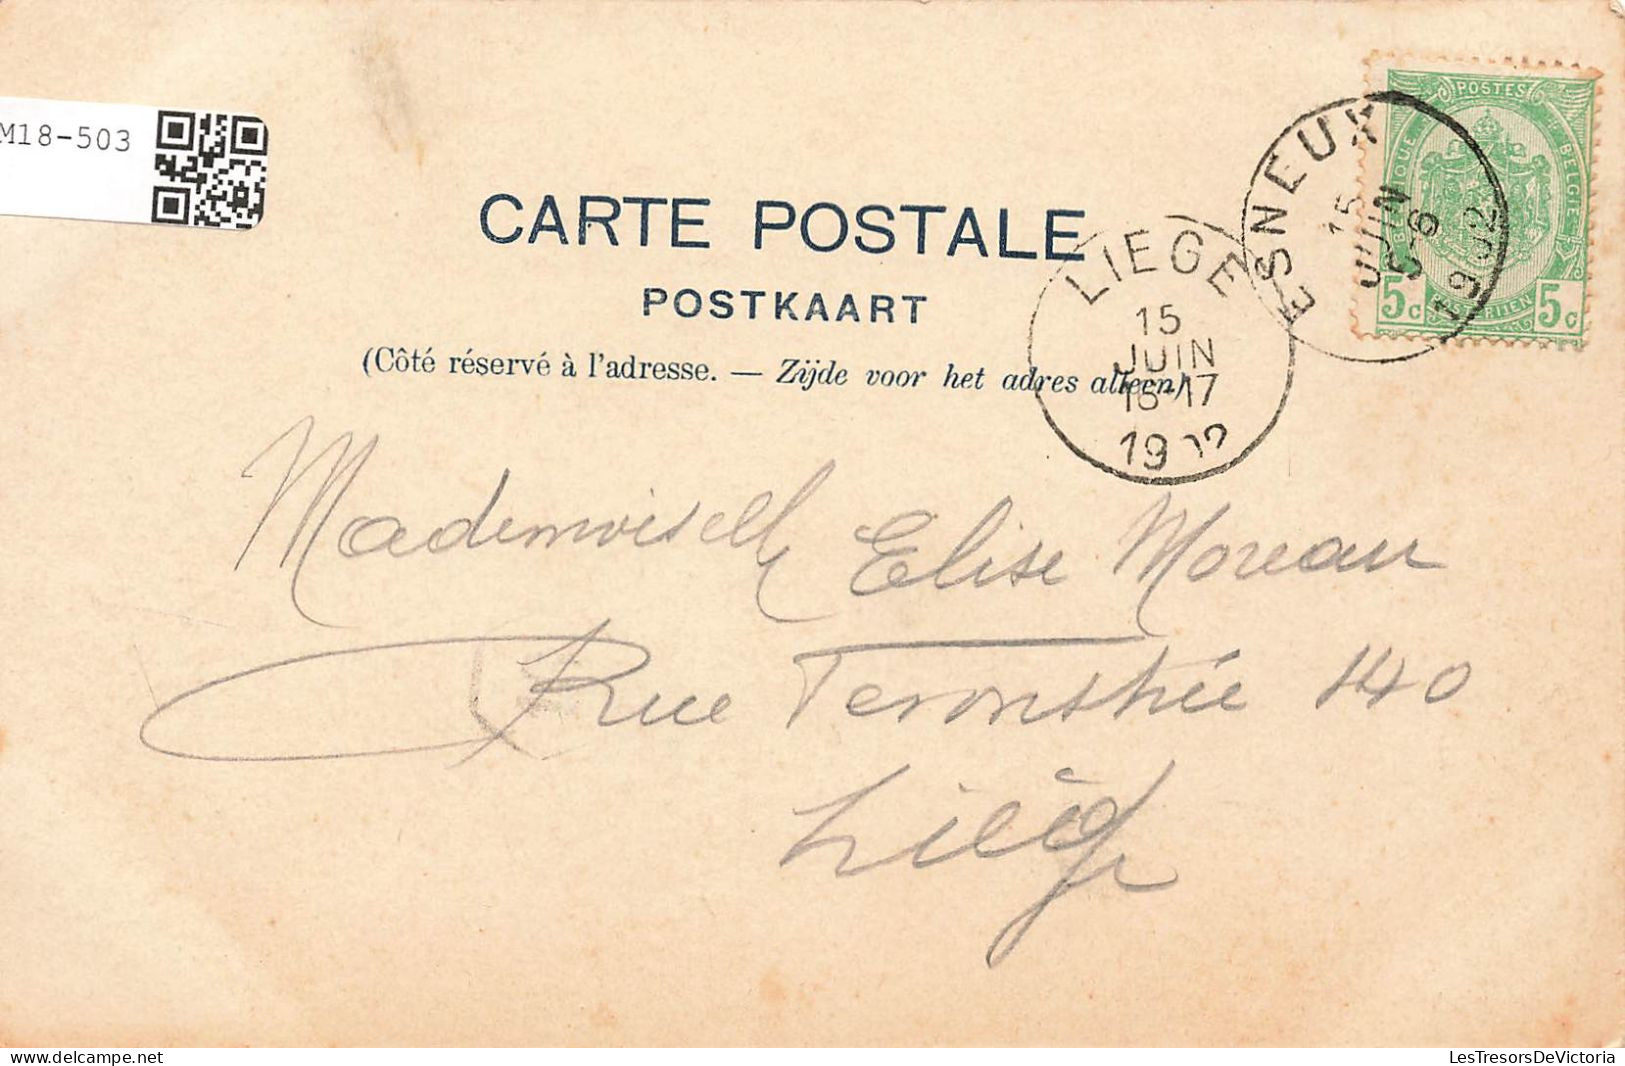 M18-503
CARTE POSTALE
POSTKAART
(Côté réservé à l'adresse. — Zijde voor het adres alleen)
LIEGE
15
JUIN
16-17
1902
ESNEUX
15
JUIN
5-6
1902
POSTES
BELGIE
5c 5c
Mademoiselle Elise Moreau
Rue Feronstrée 140
Liège
delcampe.net
LesTresorsDeVictoria